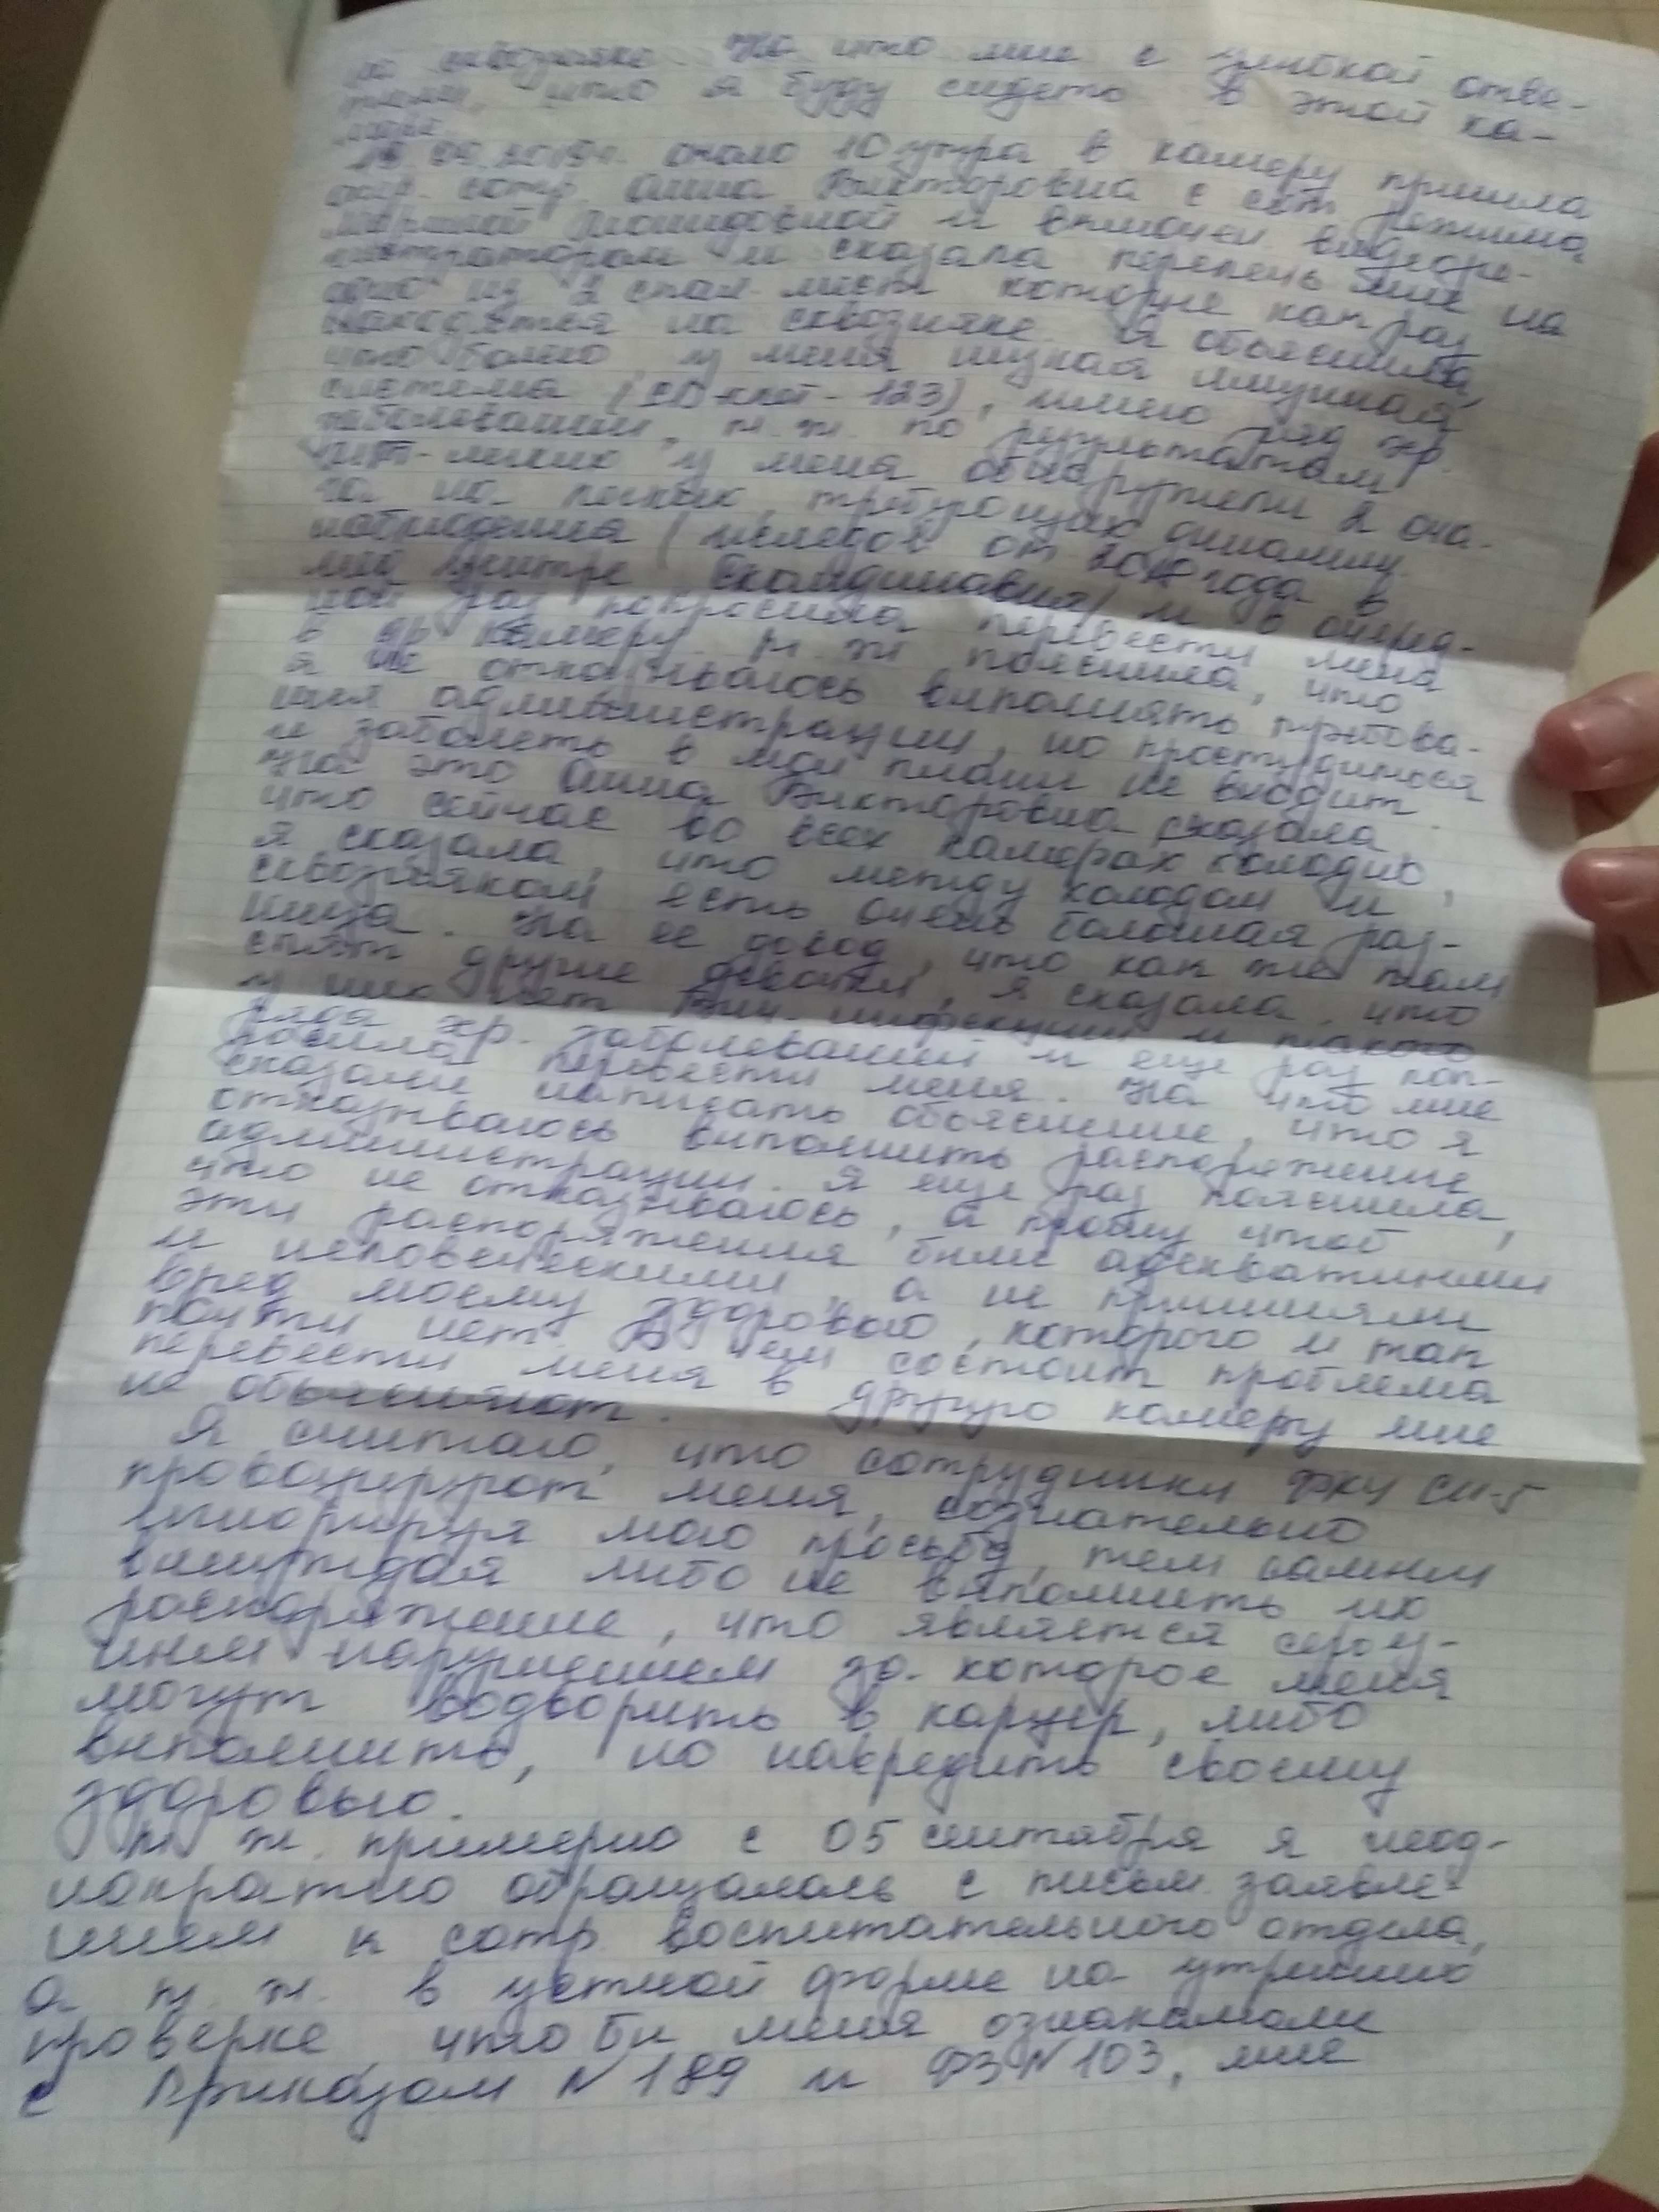 на сквозняке. На что мне с улыбкой отве-
тили, что я буду сидеть в этой ка-
мере.
09.2019г. около 10 утра в камеру пришла
опер. сотр. Анна Викторовна с сот. режима
и включен. видеоре-
гистратором и сказала перелечь мне на
одно из 2 спал. мест которые как раз
находятся на сквозняке. Я объяснила,
что болею у меня низкая имунная
система (СD-клет - 123), имею ряд хр.
заболеваний, т.ж. по результатам
легких у меня обнаружили 2 оча-
га на легких, требующих динамику
наблюдения (исследов от года в
мед центре Скандинавия) и в очеред-
ной раз попросила перевести меня
в др камеру. т.ж пояснила, что
я не отказываюсь выполнять требова-
ния администрации, но простудиться
и заболеть в мои планы не входит.
На это Анна Викторовна сказала
что сейчас во всех камерах холодно,
я сказала, что между холодом и
сквозняком есть очень большая раз-
ница. На ее довод, что как же там
спят другие девочки, я сказала, что
у них нет Вич. инфекции и такого
ряда хр. заболеваний и еще раз поп-
росила перевести меня. На что мне
сказали написать объяснение, что я
отказываюсь выполнить распоряжение
администрации. Я еще раз пояснила,
что не отказываюсь, а прошу чтоб
эти распоряжения были адекватными
и человеческими, а не причиняли
вред моему здоровью, которого и так
почти нет. В чем состоит проблема
перевести меня в другую камеру мне
не объясняют.
Я считаю, что сотрудники ФКУ СИ-5
провоцируют меня, сознательно
игнорируя мою просьбу, тем самым
вынуждая либо не выполнить их
распоряжение, что является серьу-
ным нарушением за которое меня
могут водворить в карцер, либо
выполнить, но навредить своему
здоровью.
т. ж. примерно с 05 сентября я неод-
нократно обращалась с письм. заявле-
нием к сотр. воспитательного отдела,
а т. ж. в устной форме на утренних
проверке что бы меня ознакамоли
с Приказом N 189 и ФЗ N 103, мне